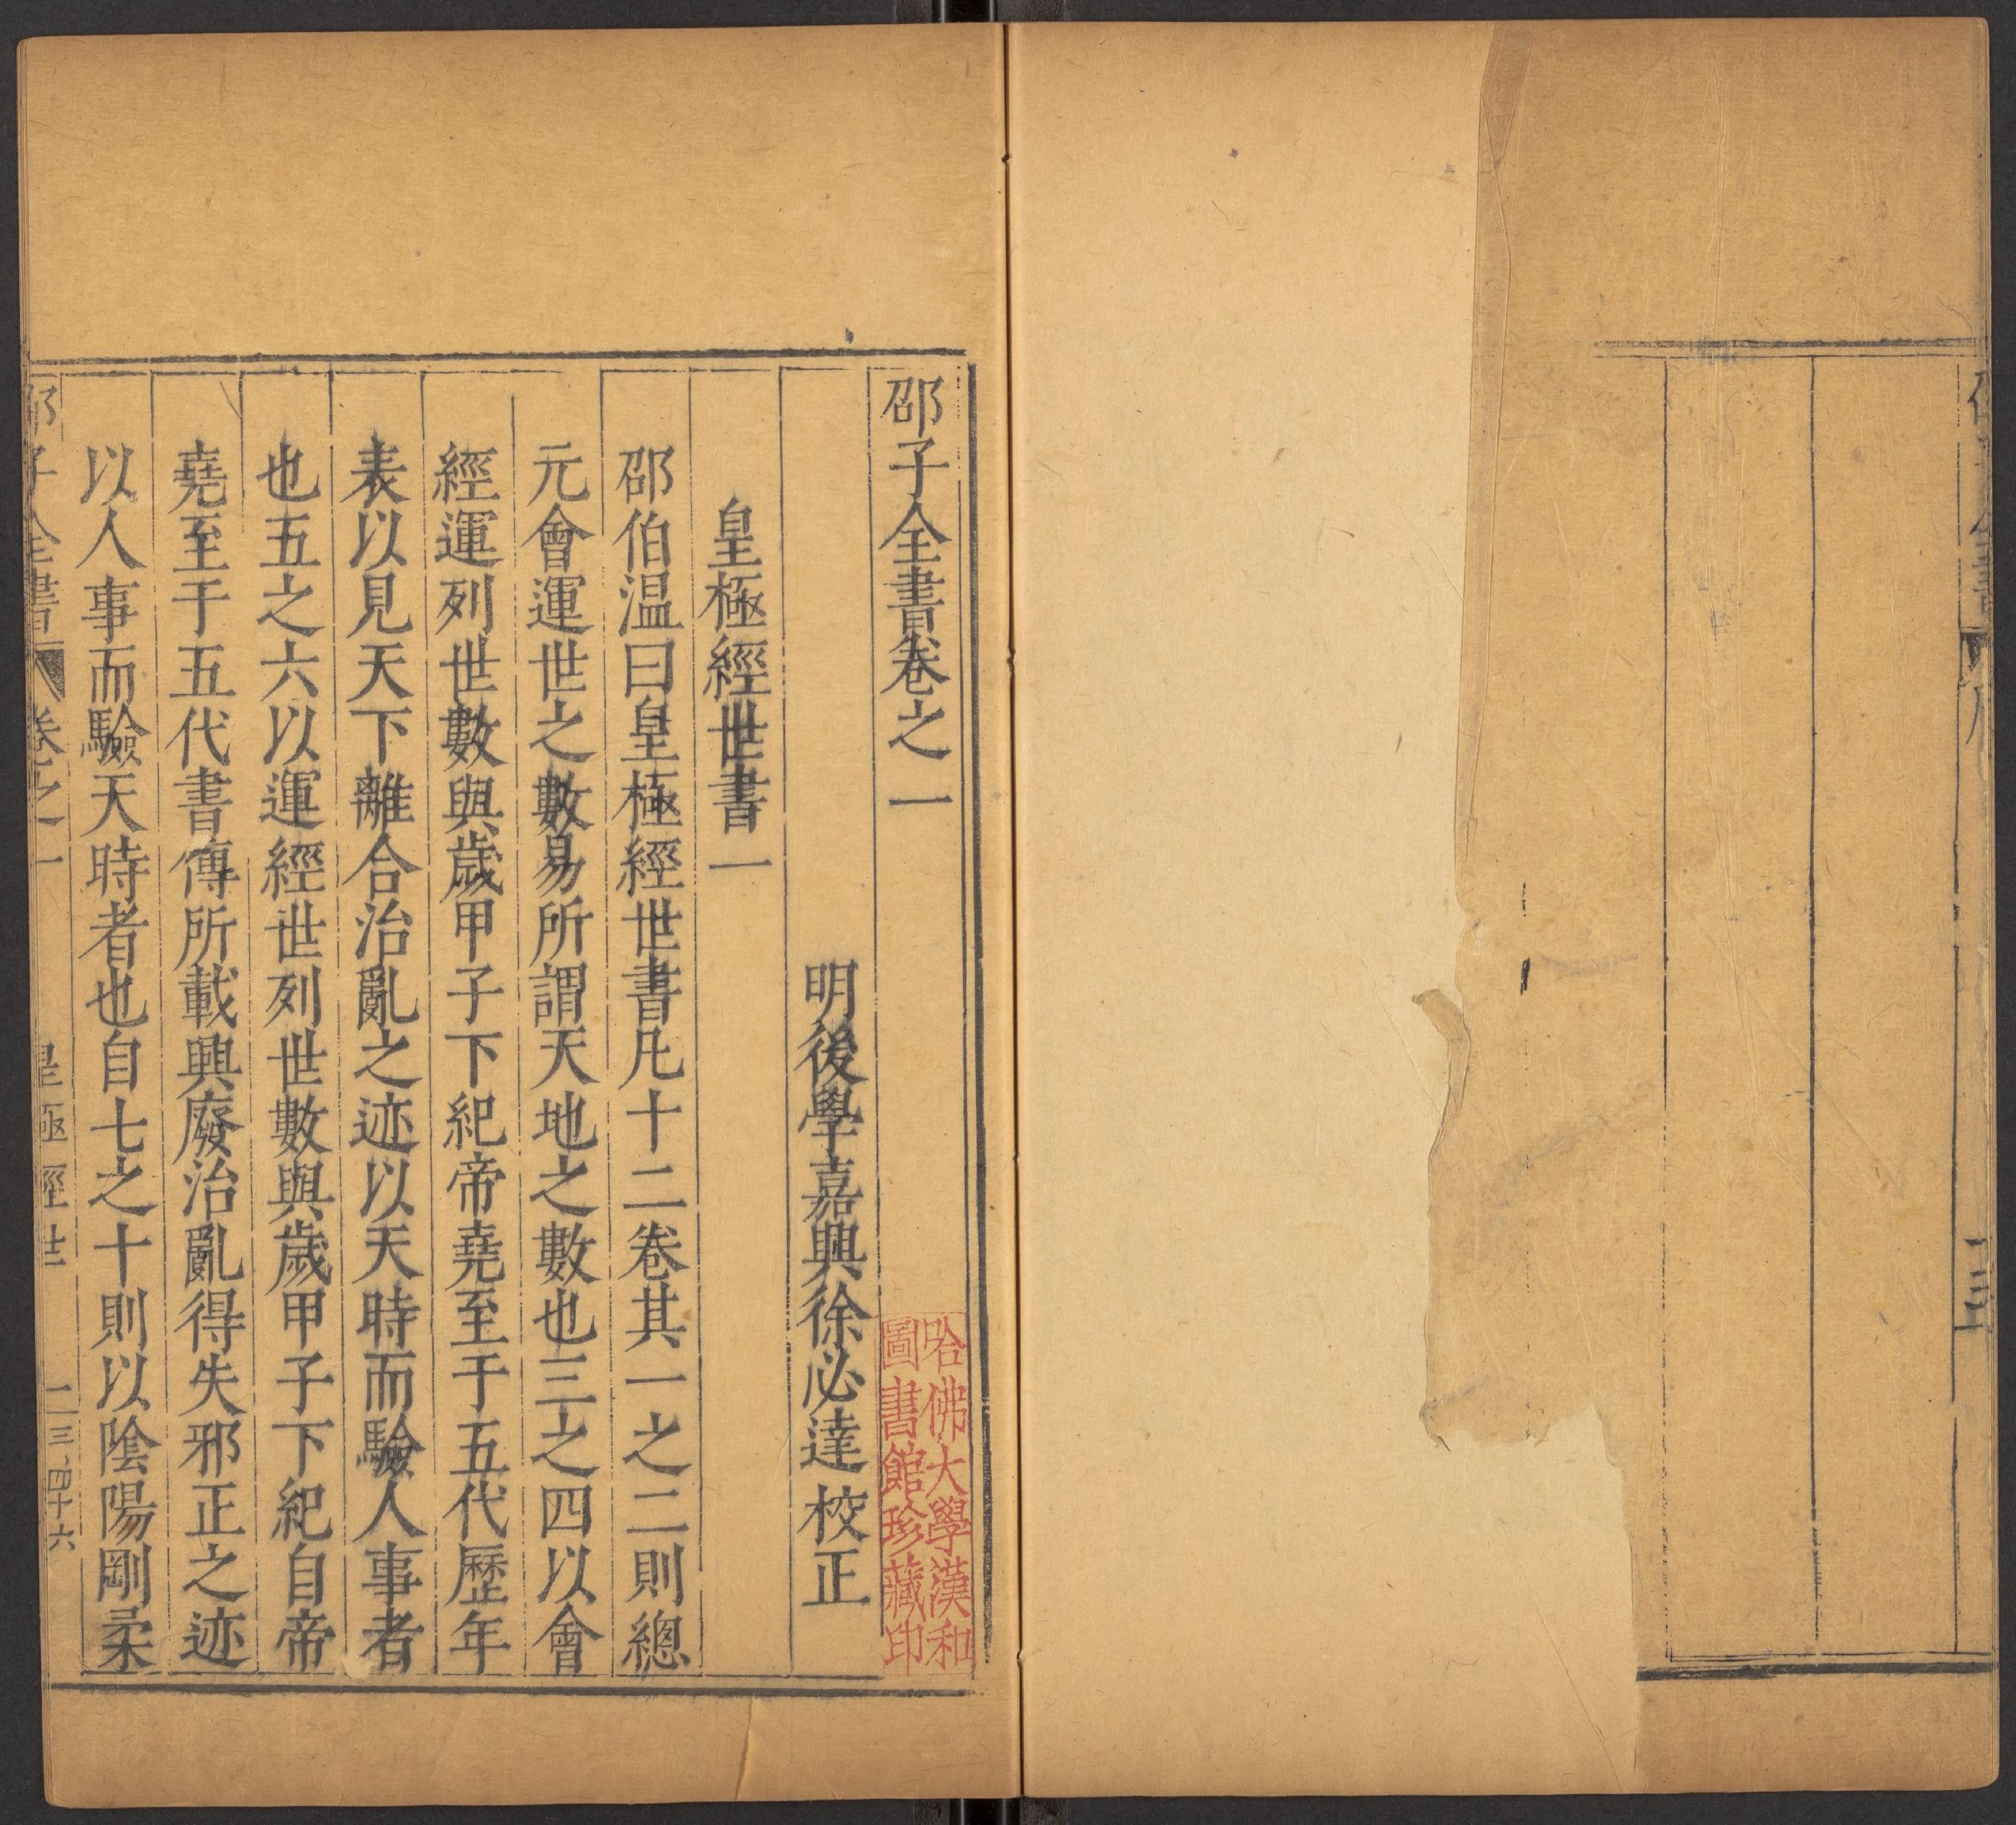 邵子全書卷之一
明後學嘉興徐必達校正
皇極經世書一
邵伯温曰皇極經世書凡十二卷其一之二則總
元會運世之數易所謂天地之數也三之四以會
經運列世數與歲甲子下紀帝堯至于五代歷年
表以見天下離合治亂之迹以天時而驗人事者
也五之六以運經世列世數與歲甲子下紀自帝
堯至于五代書傳所載興廢治亂得失邪正之迹
以人事而驗天時者也自七之十則以陰陽剛柔
邵子全書 卷之一 皇極經世 一 三四十六
哈佛大學漢和
圖書館珍藏印